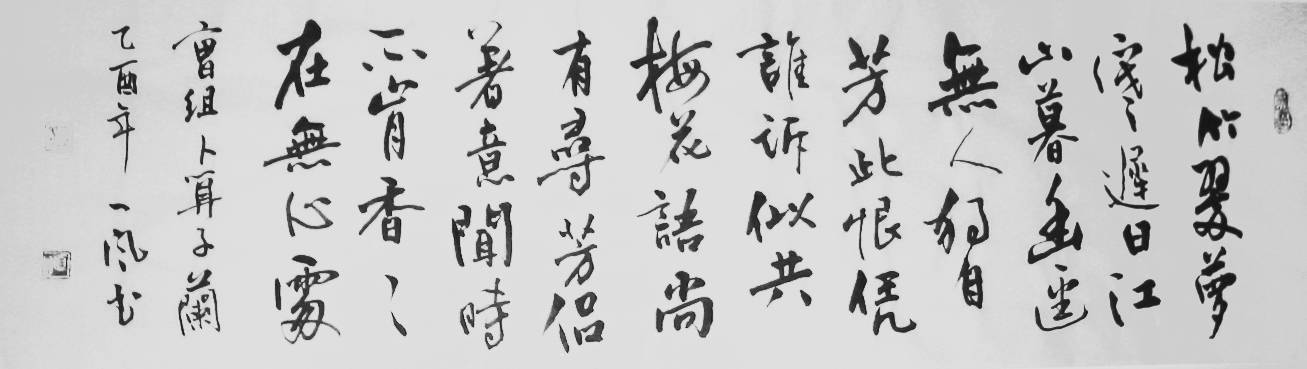 松竹翠萝
寒遲日江
山暮幽逕
無人獨自
芳此恨凭
誰訴似共
梅花語尚
有尋芳侣
著意聞時
不肯香〻
在無心處
曹組卜算子蘭
乙酉年一风书